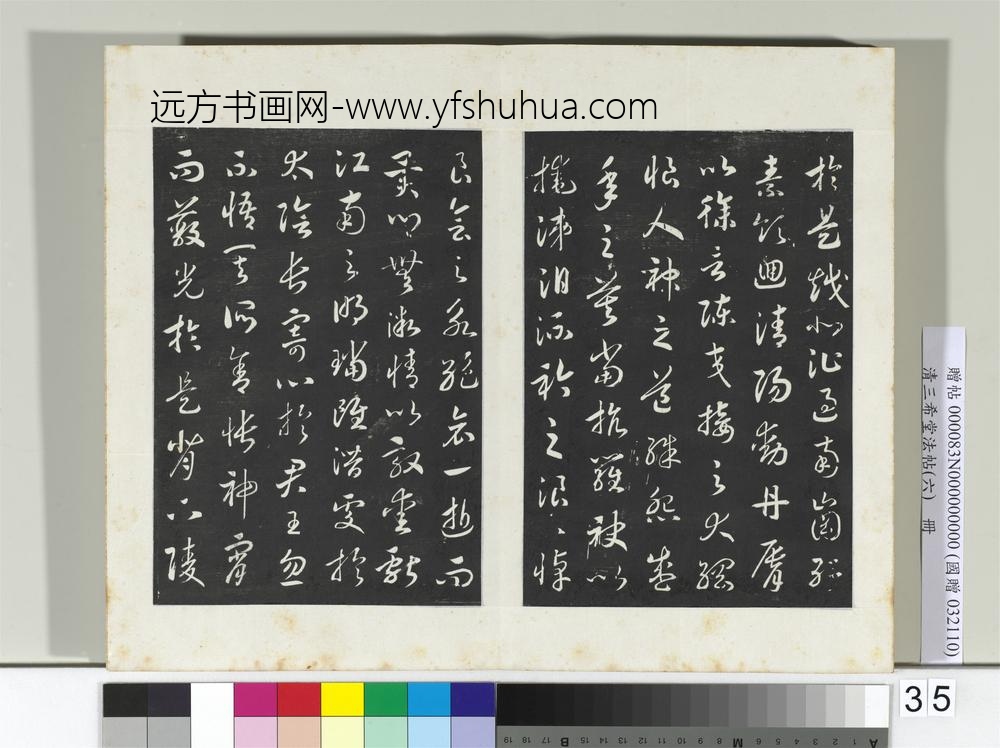 远方书画网-www.yfshuhua.com
於是越北沚過南岡紆
素領迴清陽動丹脣
以徐言陳交接之大綱
恨人神之道殊怨盛
年之莫當抗羅袂以
掩涕泪流衿之浪〻悼
良會之永絕哀一逝而
異鄉無微情以效愛獻
江南之明璫雖潛處於
太陰長寄心於君王忽
不悟其所舍悵神宵
而蔽光於是背下陵
贈帖 000083N000000000 (國贈 032110)
清三希堂法帖(六) 冊
35
A 1 2 3 4 5 6 M 8 9 10 11 12 13 14 15 B 17 18 19